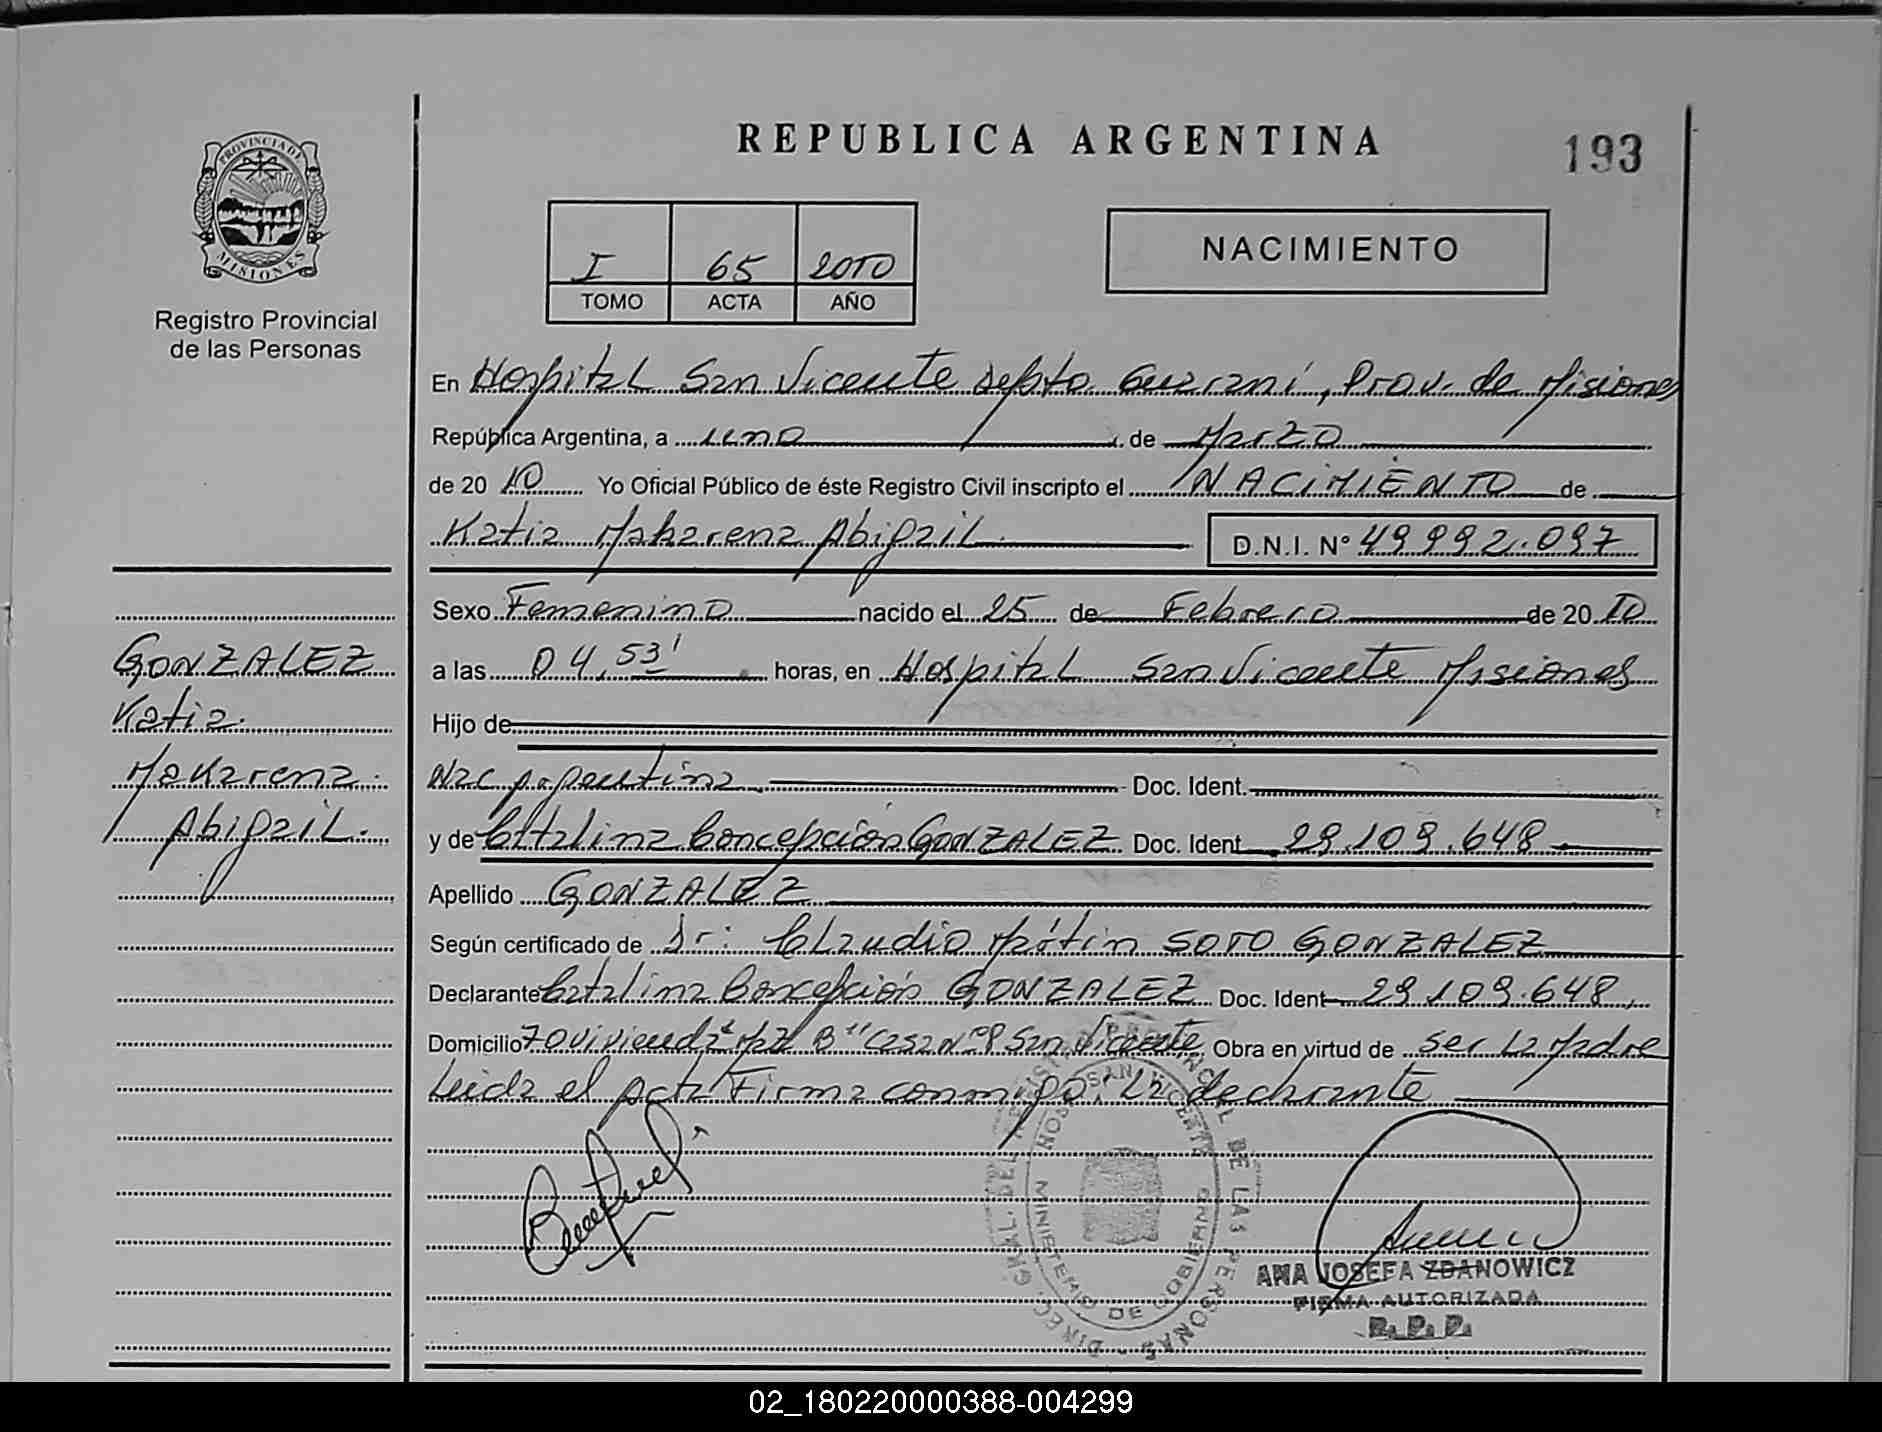 REPUBLICA ARGENTINA
193
PROVINCIA DE
MISIONES
Registro Provincial
de las Personas
I 65 2010
TOMO ACTA AÑO
NACIMIENTO
En Hospital San Vicente depto. Guaraní, Prov. de Misiones
República Argentina, a uno de Marzo
de 20 10 Yo Oficial Público de éste Registro Civil inscripto el NACIMIENTO de
Katia Makarena Abigail D.N.I. N° 49992.097
Sexo Femenino nacido el 25 de Febrero de 20 10
a las 04,53' horas, en Hospital San Vicente Misiones
Hijo de
Nac Argentina Doc. Ident.
y de Catalina Concepción GONZALEZ Doc. Ident 29.109.648
Apellido GONZALEZ
Según certificado de Dr: Claudio SOTO GONZALEZ
Declarante Catalina Concepción GONZALEZ Doc. Ident 29.109.648
Domicilio 70 Vivienda Mz B" Casa San Vicente Obra en virtud de ser La Madre
Leida el Acta Firma conmigo: La declarante
GONZALEZ
Katia
Makarena
Abigail
DIREC. GRAL. DEL REGISTRO PROVINCIAL DE LAS PERSONAS
SAN VICENTE
MINISTERIO DE GOBIERNO
ANA JOSEFA ZDANOWICZ
FIRMA AUTORIZADA
R. P. P.
02_180220000388-004299